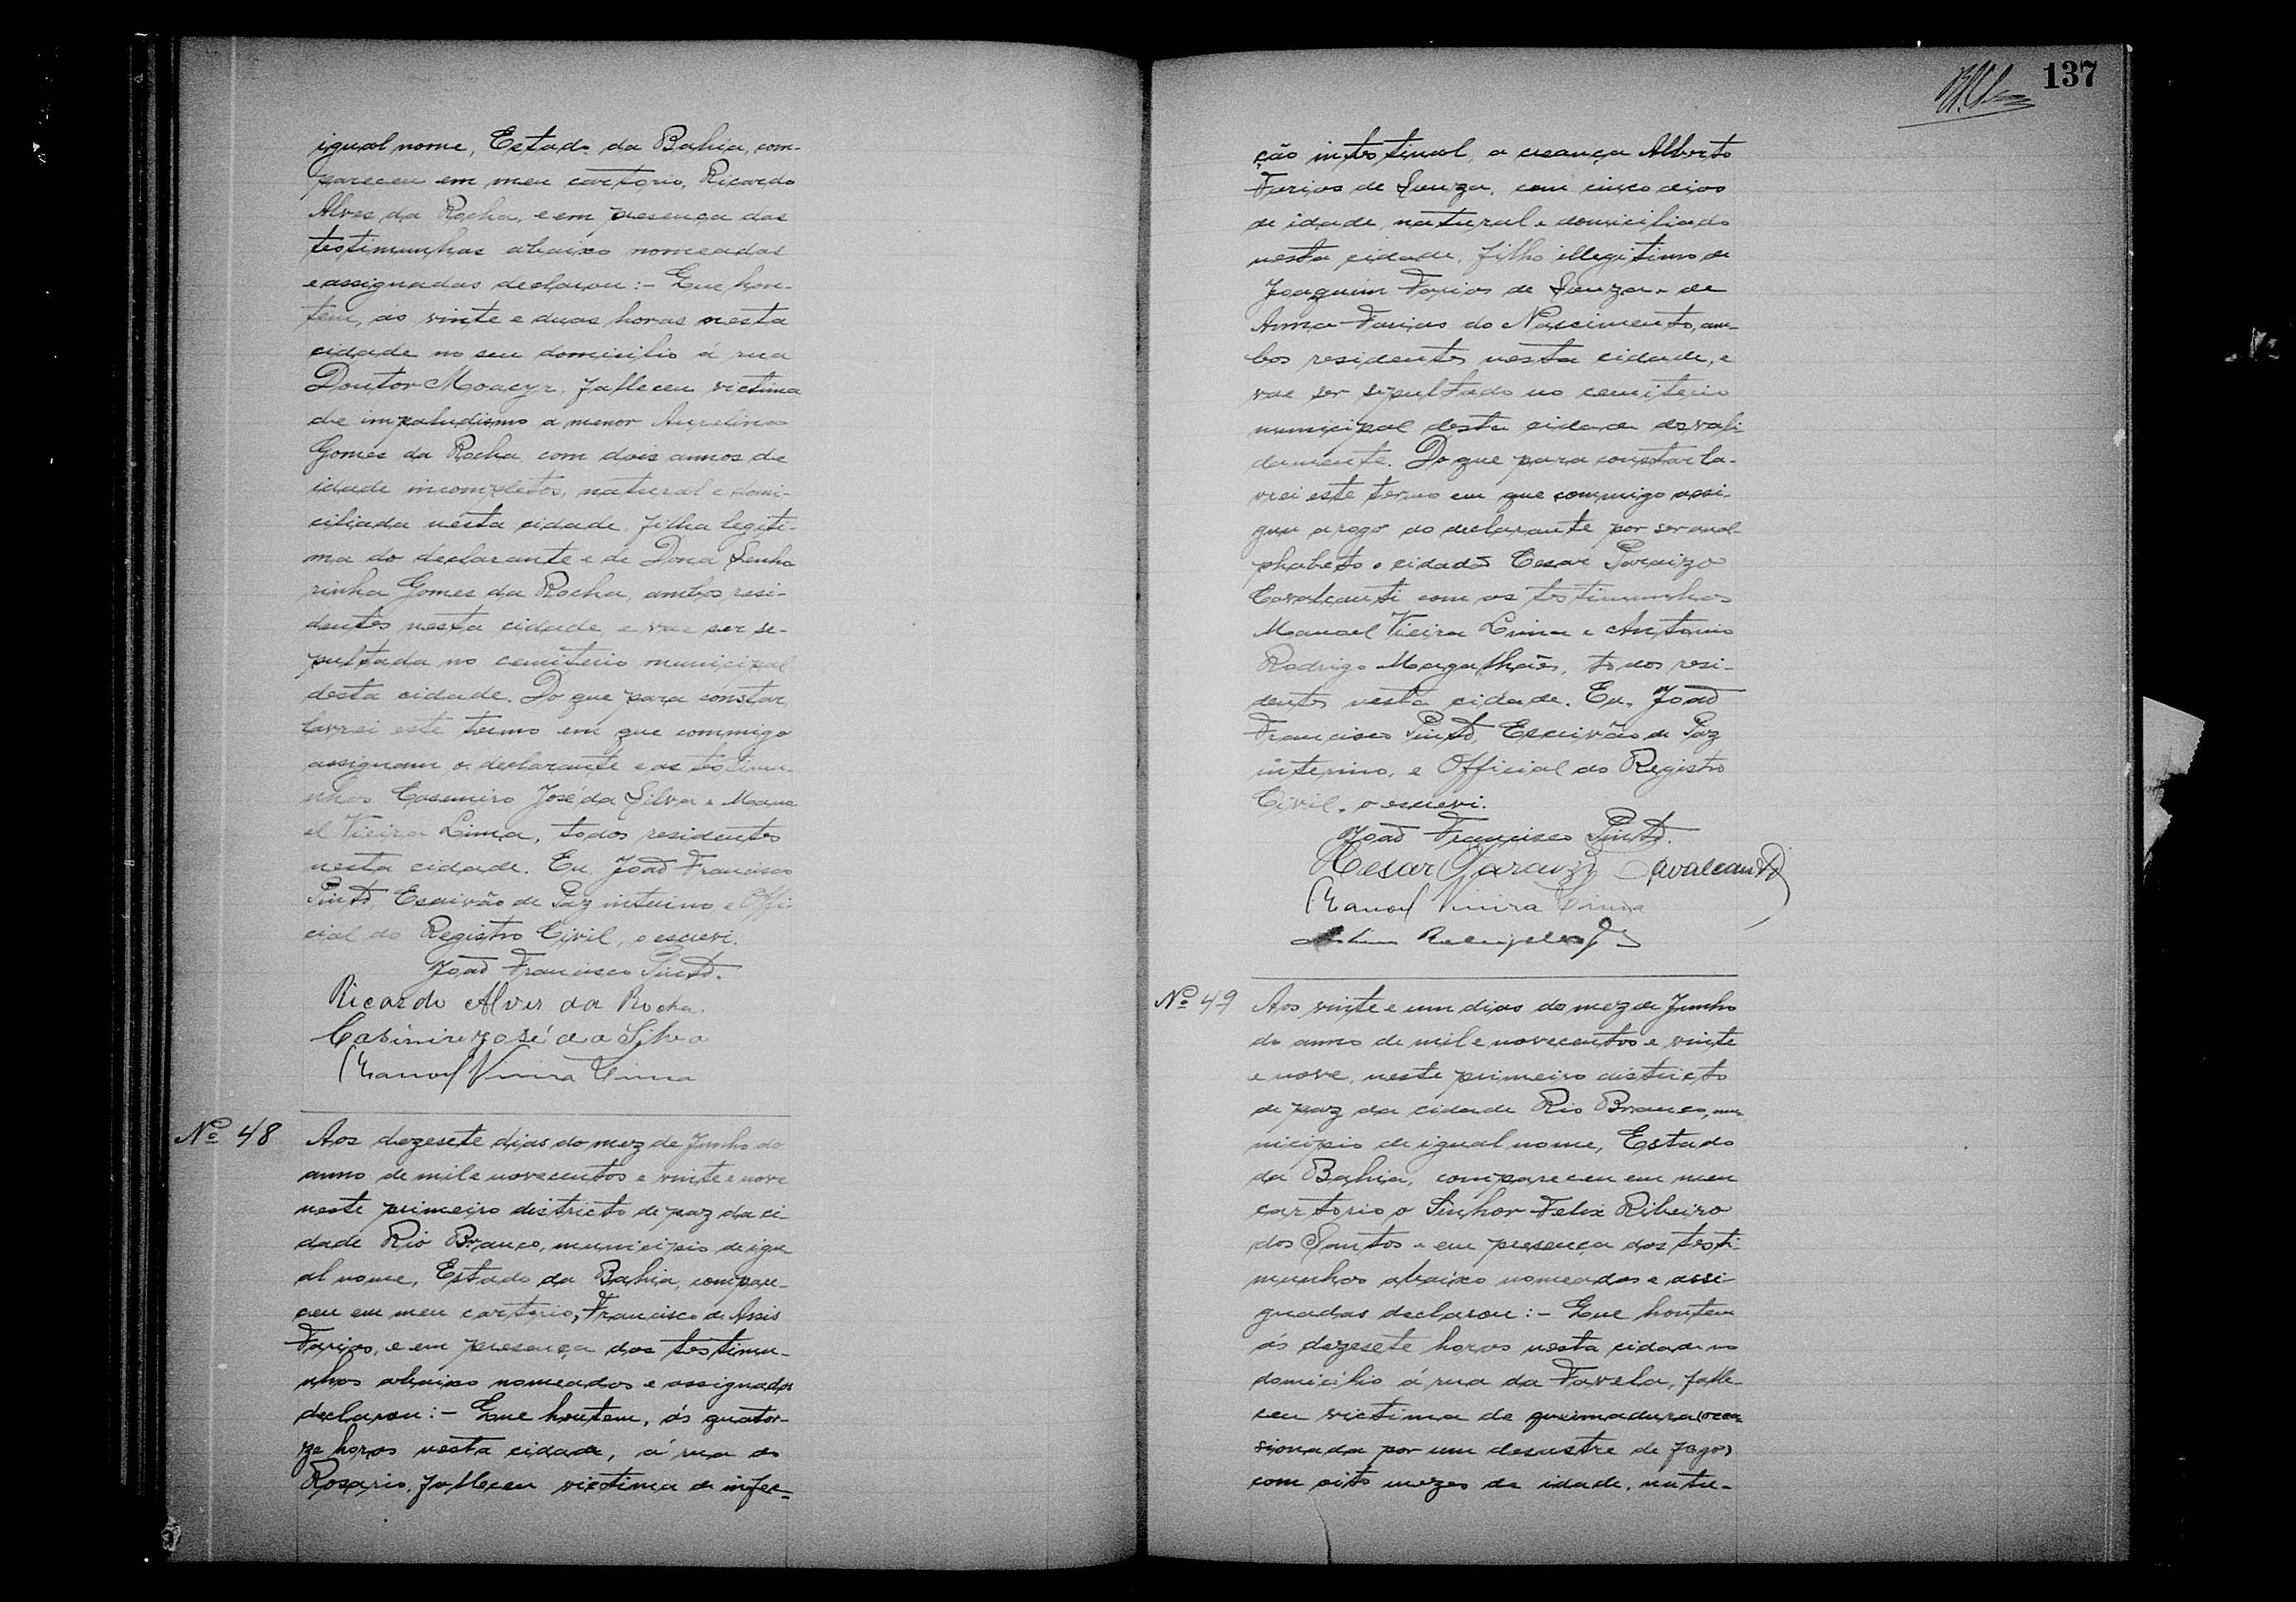 igual nome, Estado da Bahia, com-
pareceu em meu cartorio, Ricardo
Alves da Rocha, e em presença das
testimunhas abaixo nomeadas
e assignadas declarou: - Que hon-
tem, ás vinte e duas horas nesta
cidade no seu domicilio á rua
Doutor Moacyr, falleceu victima
de impaludismo a menor Aurelina
Gomes da Rocha com dois annos de
idade incompletos, natural e domi-
ciliada nésta cidade, filha legiti-
ma do declarante e de Dona Senho
rinha Gomes da Rocha, ambos resi-
dentes nesta cidade, e vae ser se-
pultada no cemiterio municipal
desta cidade. Do que para constar,
lavrei este termo em que commigo
assignam o declarante e as testimu-
nhas Casemiro José da Silva e Mano
el Vieira Lima, todos residentes
nesta cidade. Eu, João Francisco
Pinto, Escrivão de Paz interino e Offi-
cial do Registro Civil, o escrevi.
João Francisco Pinto.
Ricardo Alves da Rocha.
Casimiro José da Silva
Manoel Vieira Lima
Nº 48 Aos dezesete dias do mez de Junho do
anno de mil e novecentos e vinte e nove
neste primeiro districto de paz da ci-
dade Rio Branco, municipio de igu-
al nome, Estado da Bahia, compare-
ceu em meu cartorio, Francisco de Assis
Farias, e em presença das testimu-
nhas abaixo nomeadas e assignadas
declarou: - Que hontem, ás quator-
ze horas nesta cidade, á rua do
Rosario, falleceu victima de infec-
137
ção intestinal, a creança Alberto
Farias de Souza, com cinco dias
de idade, natural e domiciliado
nesta cidade, filho illegitimo de
Joaquim Farias de Souza e de
Anna Farias do Nascimento, am-
bos residentes nesta cidade, e
vae ser sepultado no cemiterio
municipal desta cidade desvali-
damente. Do que para constar la-
vrei este termo em que commigo assi-
gna a rogo do declarante por ser anal-
phabeto o cidadão Cesar Paraizo
Cavalcanti com as testimunhas
Manoel Vieira Lima e Antonio
Rodrigo Magalhães, todos resi-
dentes nesta cidade. Eu, João
Francisco Pinto, Escrivão de Paz
interino, e Official do Registro
Civil, o escrevi.
João Francisco Pinto.
Cesar Paraizo Cavalcanti
Manoel Vieira Lima
Nº 49 Aos vinte e um dias do mez de Junho
do anno de mil e novecentos e vinte
e nove, neste primeiro districto
de paz da cidade Rio Branco, mu-
nicipio de igual nome, Estado
da Bahia, compareceu em meu
cartorio o Senhor Felix Ribeiro
dos Santos e em presença das testi-
munhas abaixo nomeadas e assi-
gnadas declarou: - Que hontem
ás dezesete horas nesta cidade no
domicilio á rua da Favela, falle-
ceu victima de queimadura (occa-
sionada por um desastre de fogo)
com oito mezes de idade, natu-